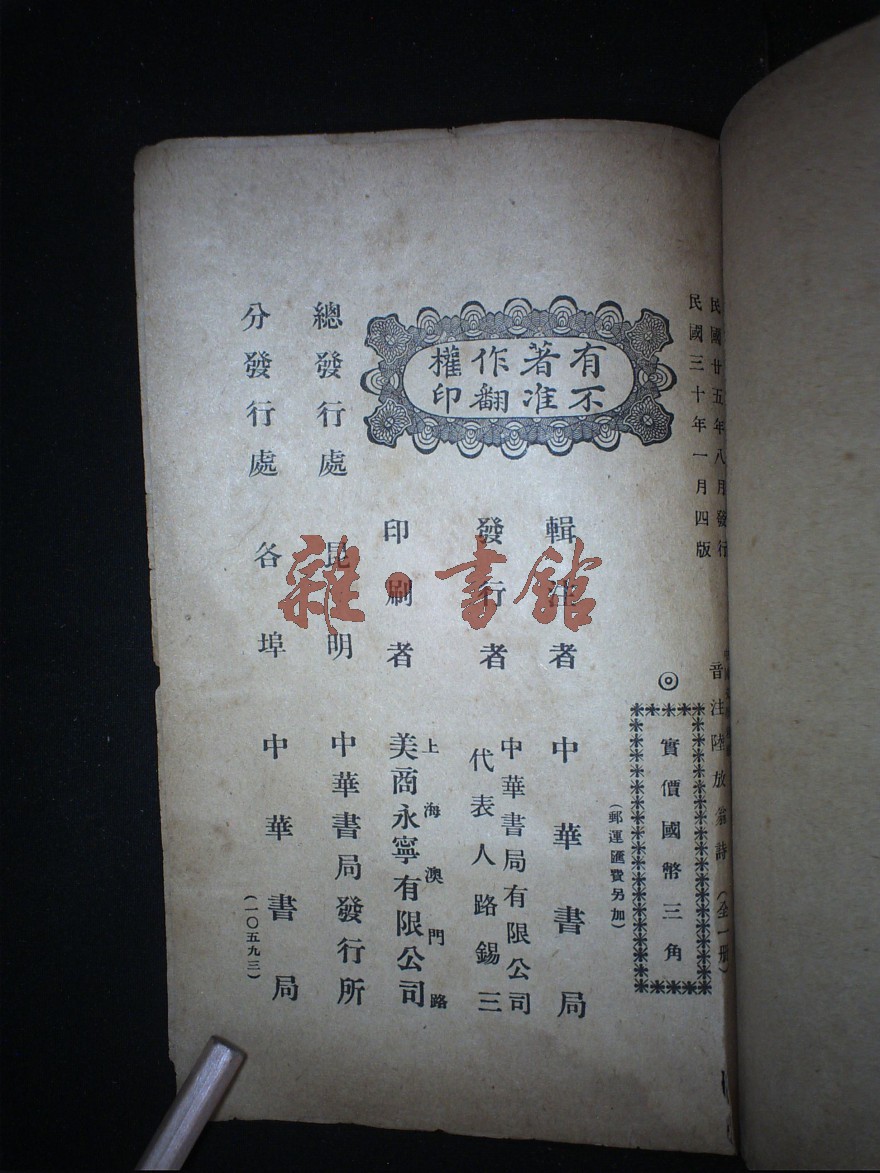 民國廿五年八月發行
民國三十年一月四版
音注陸放翁詩（全一册）
◎實價國幣三角
（郵運匯費另加）
有著作權
不准翻印
輯注者 中華書局
發行者 中華書局有限公司
代表人路錫三
印刷者 上海澳門路
美商永寧有限公司
總發行處 昆明 中華書局發行所
分發行處 各埠 中華書局
（一〇五九三）
雜·書館